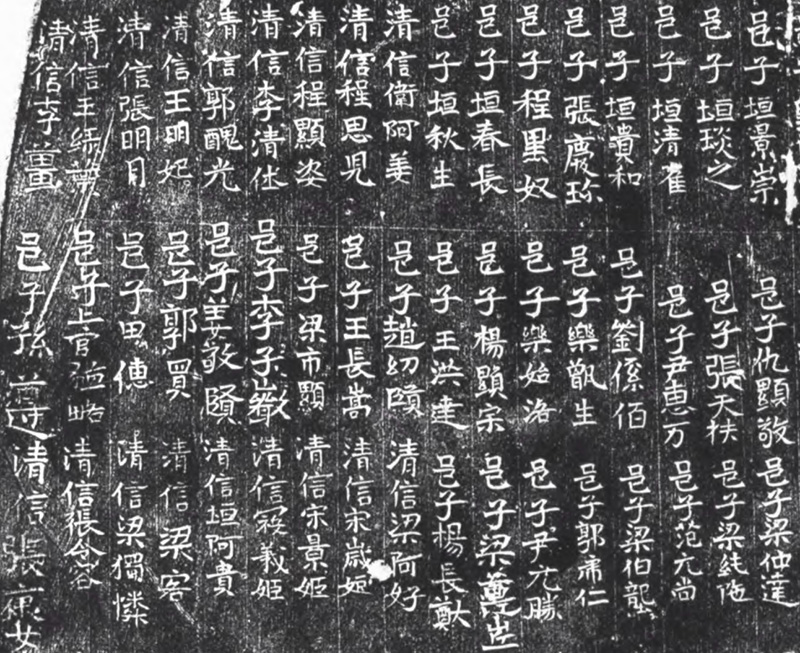 邑子垣景崇
邑子垣琰之
邑子垣清雀
邑子垣貴和
邑子張慶珎
邑子程黑奴
邑子垣春長
邑子垣秋生
清信衛阿姜
清信程思兒
清信程顯姿
清信李清
清信郭醜光
清信王明妃
清信張明月
清信王
清信李薑
邑子仇顯敬
邑子張天扶
邑子尹惠万
邑子劉係佰
邑子樂甑生
邑子樂始洛
邑子楊顯宗
邑子王洪達
邑子趙幼頤
邑子王長嵩
邑子梁市顯
邑子李子巖
邑子姜敬賢
邑子郭買
邑子田僡
邑子上官略
邑子孫遵
邑子梁仲達
邑子梁純陁
邑子范元尚
邑子梁伯龍
邑子郭肅仁
邑子尹元勝
邑子梁
邑子楊長猷
清信梁阿好
清信宋歲姬
清信宋景姬
清信寇義姬
清信垣阿貴
清信梁容
清信梁獨憐
清信張令容
清信張女